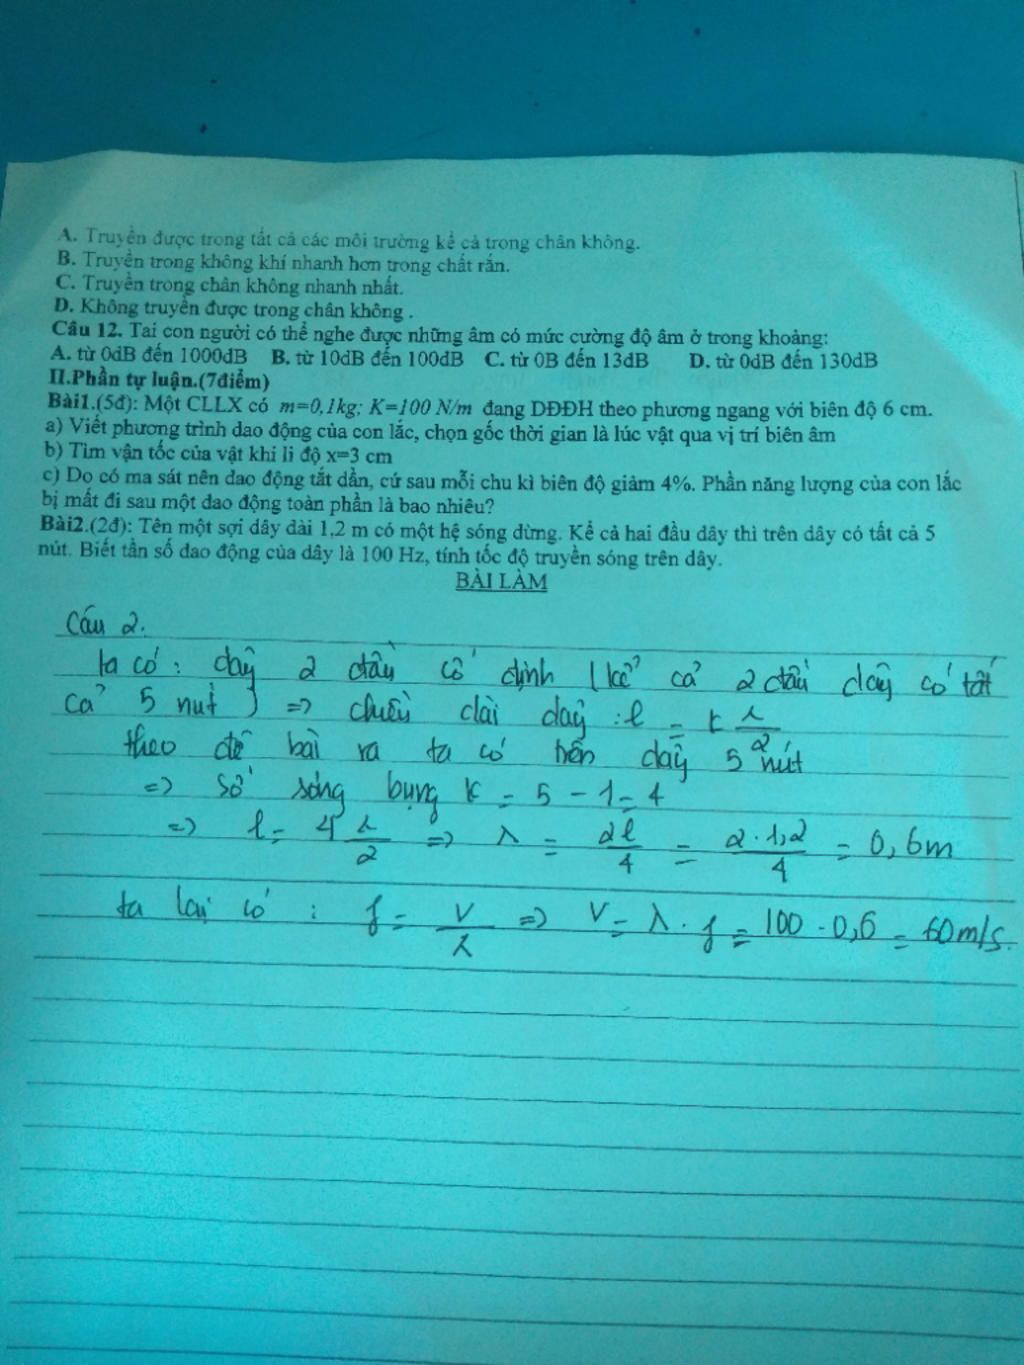 A. Truyền được trong tất cả các môi trường kể cả trong chân không.
B. Truyền trong không khí nhanh hơn trong chất rắn.
C. Truyền trong chân không nhanh nhất.
D. Không truyền được trong chân không .
Câu 12. Tai con người có thể nghe được những âm có mức cường độ âm ở trong khoảng:
A. từ 0dB đến 1000dB B. từ 10dB đến 100dB C. từ 0B đến 13dB D. từ 0dB đến 130dB
II.Phần tự luận.(7điểm)
Bài1.(5đ): Một CLLX có m=0,1kg; K=100 N/m đang DĐĐH theo phương ngang với biên độ 6 cm.
a) Viết phương trình dao động của con lắc, chọn gốc thời gian là lúc vật qua vị trí biên âm
b) Tìm vận tốc của vật khi li độ x=3 cm
c) Do có ma sát nên dao động tắt dần, cứ sau mỗi chu kì biên độ giảm 4%. Phần năng lượng của con lắc
bị mất đi sau một dao động toàn phần là bao nhiêu?
Bài2.(2đ): Tên một sợi dây dài 1,2 m có một hệ sóng dừng. Kể cả hai đầu dây thì trên dây có tất cả 5
nút. Biết tần số dao động của dây là 100 Hz, tính tốc độ truyền sóng trên dây.
BÀI LÀM
Câu 2.
ta có : dây 2 đầu cố định ( kể cả 2 đầu dây có tất
cả 5 nút ) => chiều dài dây : l = k λ/2
theo đề bài ra ta có trên dây 5 nút
=> số sóng bụng k = 5 - 1 = 4
=> l = 4 λ/2 => λ = 2l/4 = 2.1,2/4 = 0,6m
ta lại có : f = v/λ => v = λ . f = 100 . 0,6 = 60m/s.